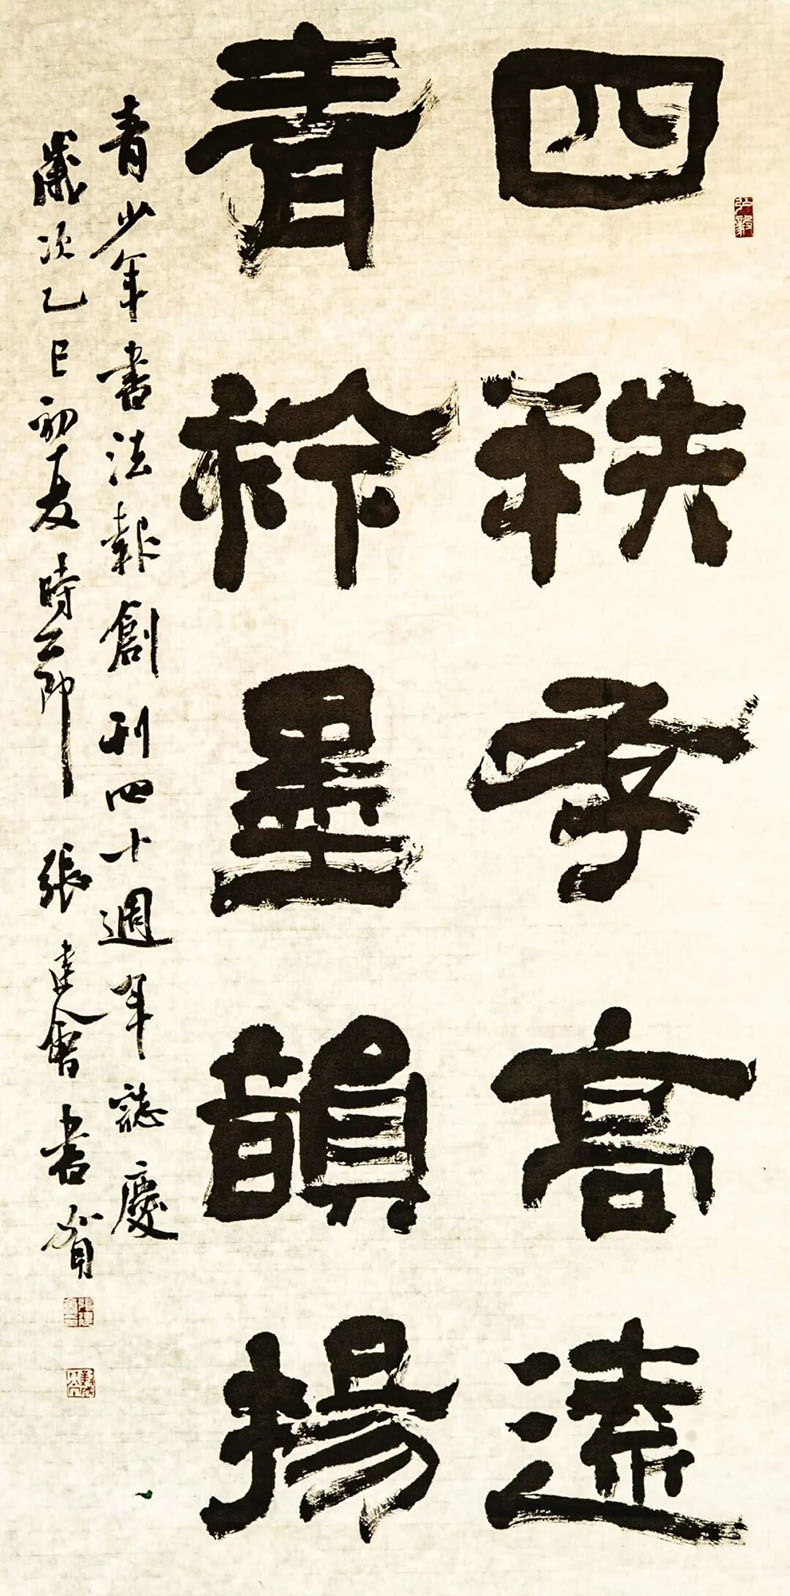 四秩存高遠
青衿墨韻揚
青少年書法報創刊四十週年誌慶
歲次乙巳初夏時節 張建會書賀
弘毅